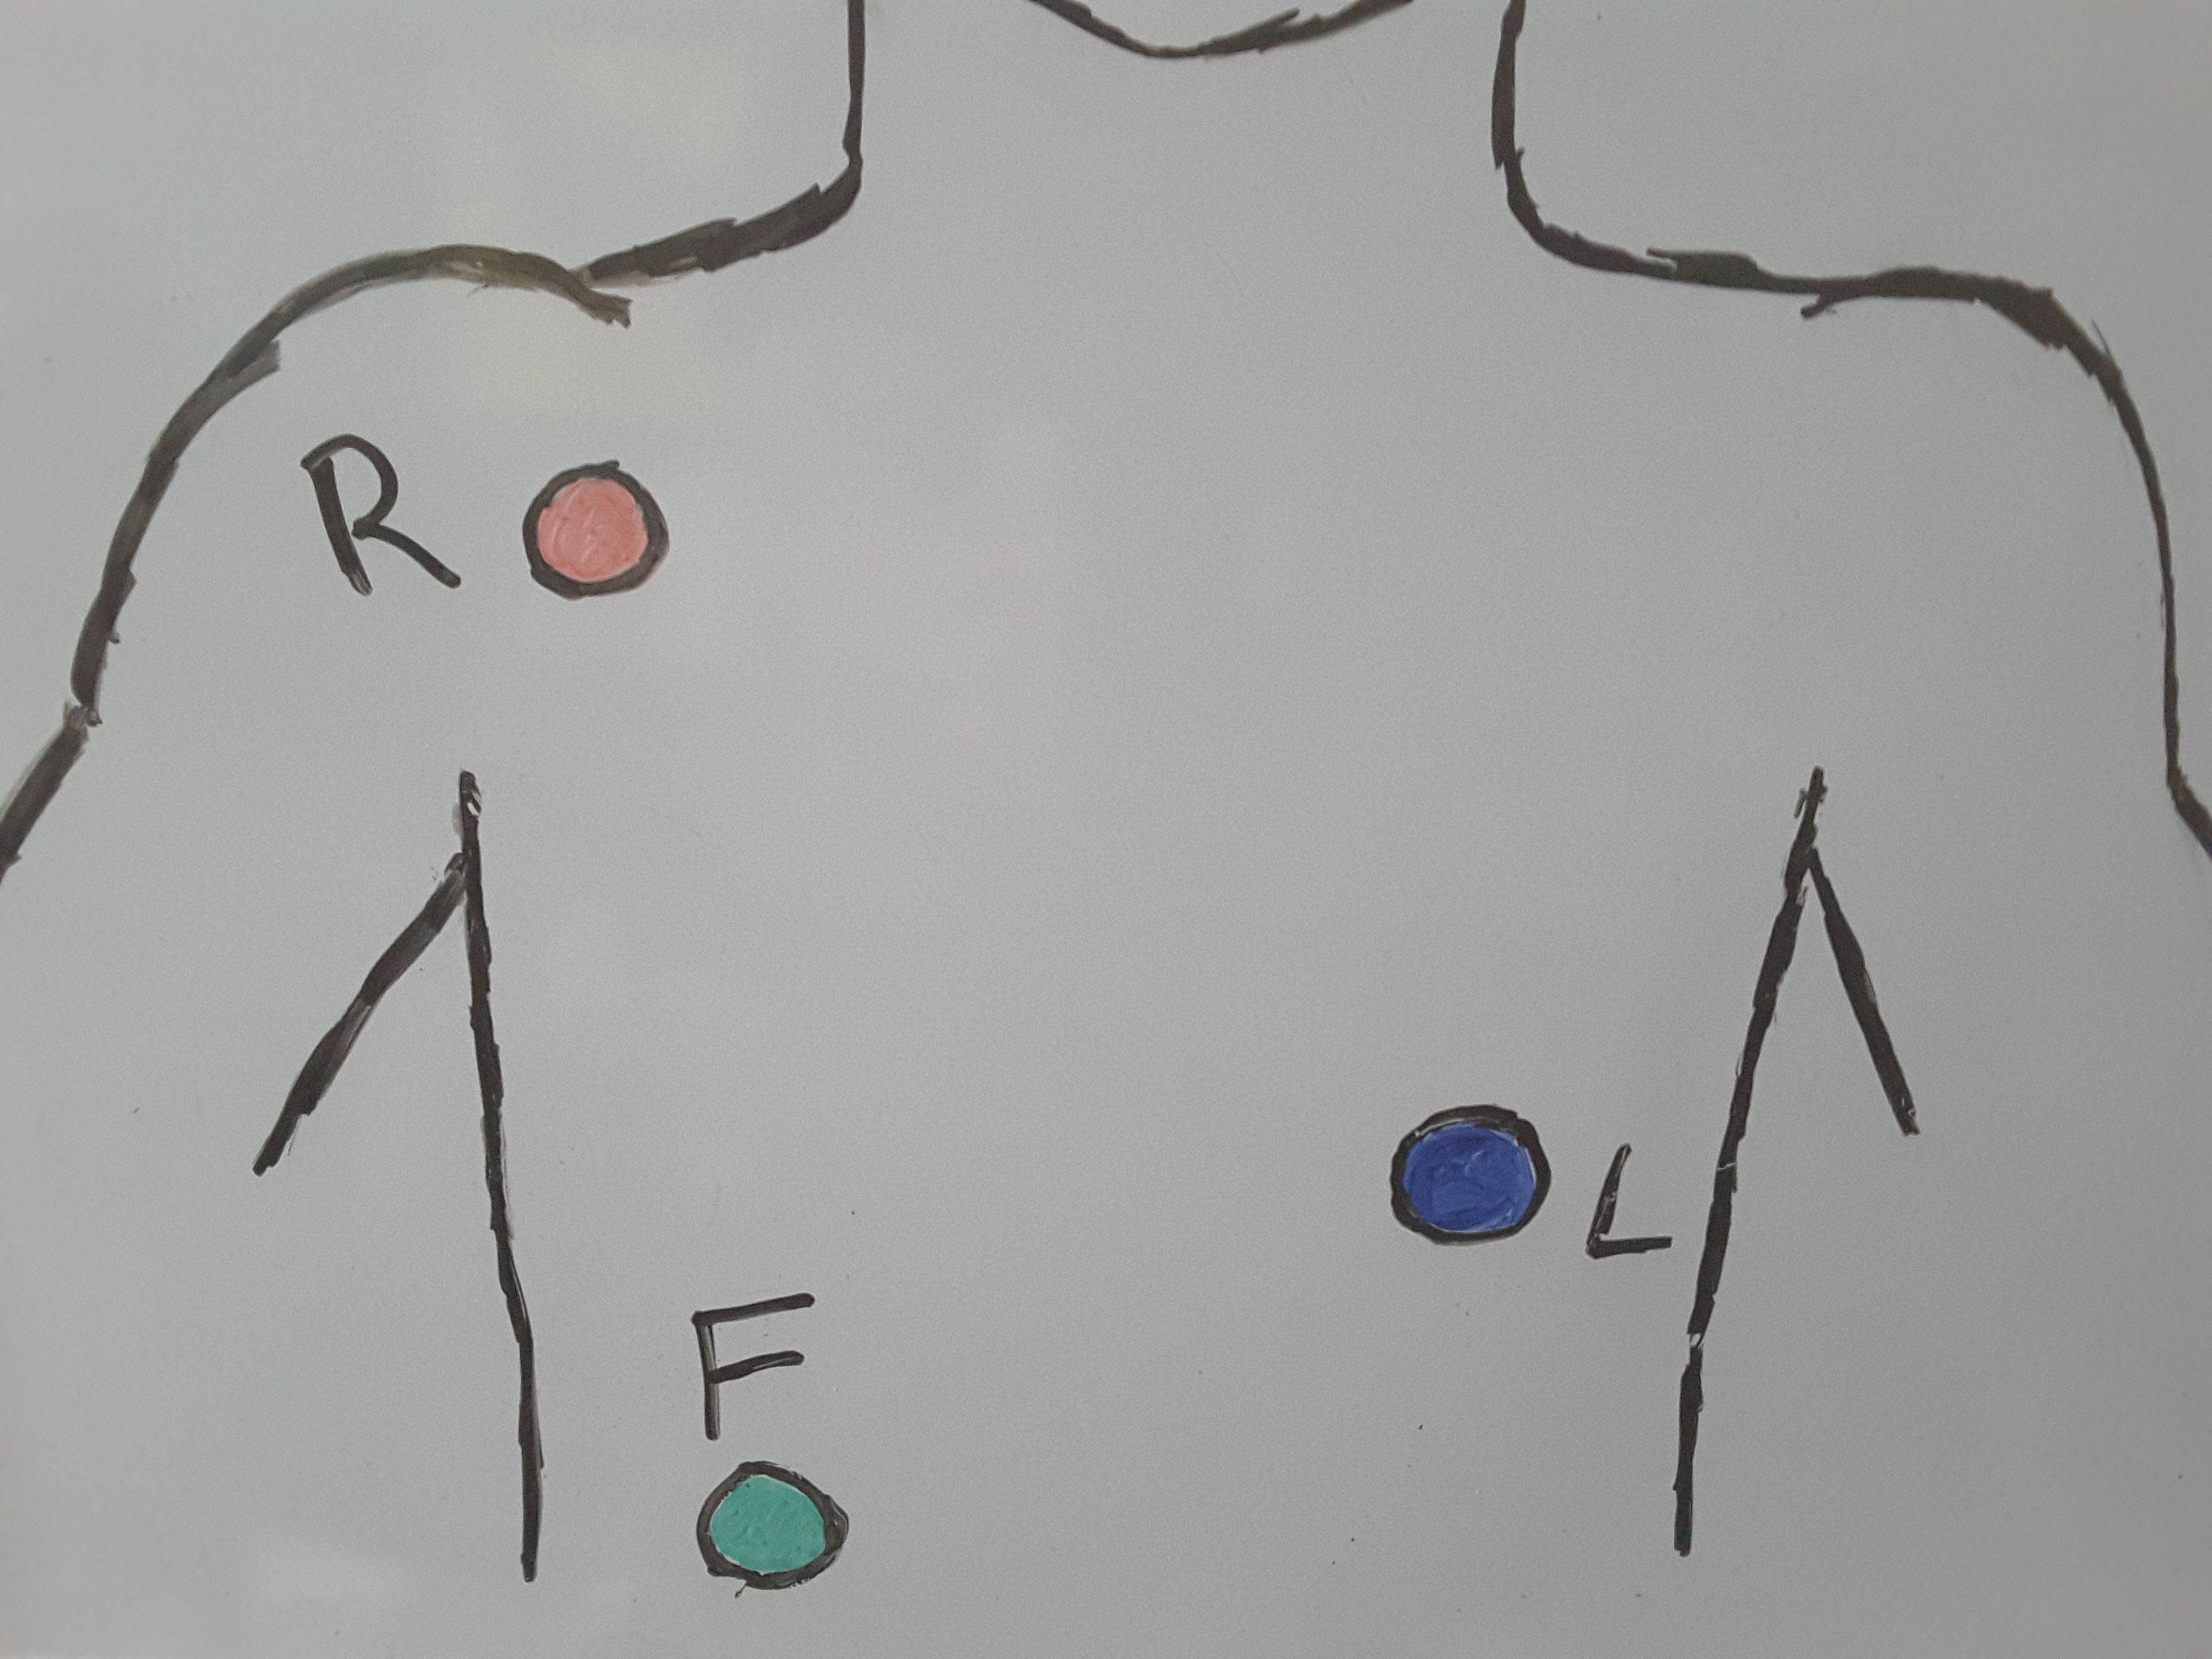 R
L
F